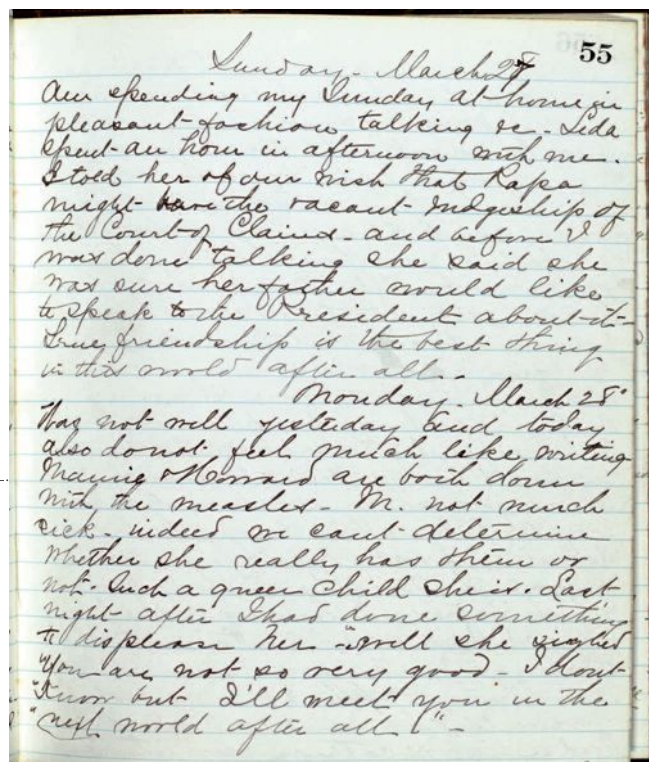 55
Sunday - March 27
Am spending my Sunday at home in
pleasant fashion talking &c - Lida
spent an hour in afternoon with me.
I told her of our wish that Papa
might have the vacant Judgeship of
the Court of Claims - and before I
was done talking she said she
was sure her father would like
to speak to the President about it -
True friendship is the best thing
in this world after all -
Monday - March 28"
Was not well yesterday and today
also do not feel much like writing
Mamie & Howard are both down
with the measles - M. not much
sick - indeed we cant determine
whether she really has them or
not. Such a queer child she is. Last
night after I had done something
to displease her - "well she sighed
"You are not so very good - I dont
"Know but I'll meet you in the
"next world after all!" -